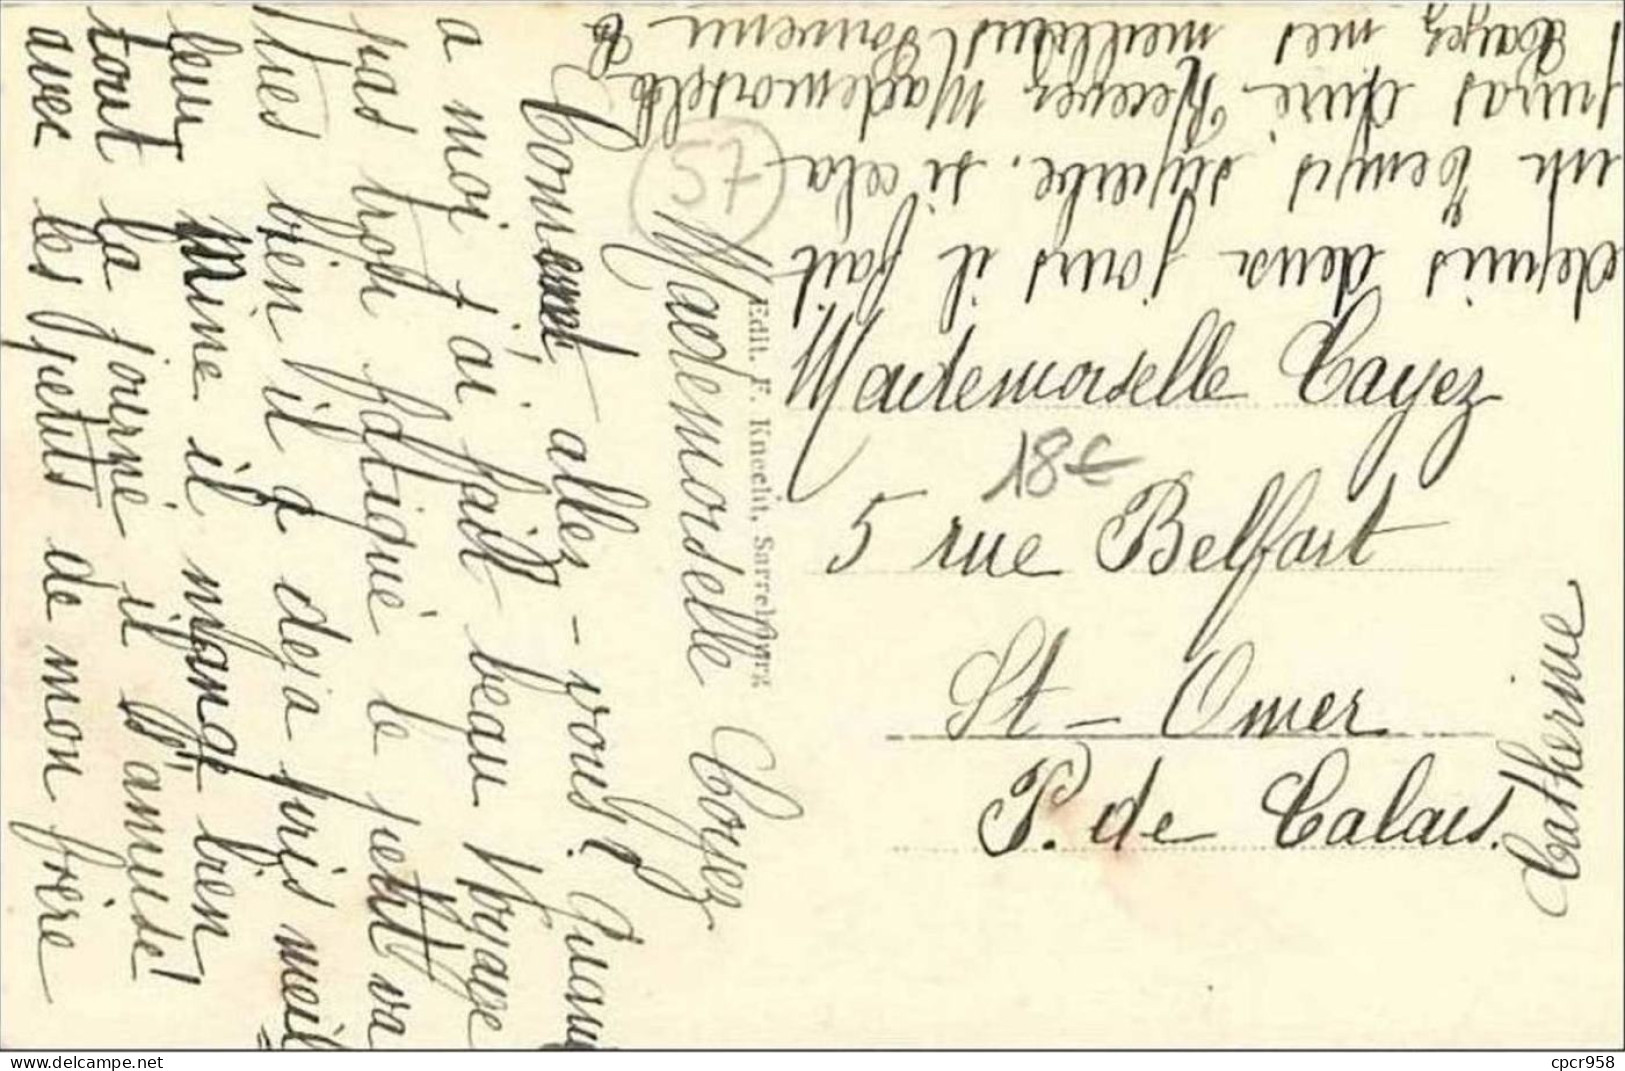 Mademoiselle Cayez
Comment allez-vous? Quant
a moi j'ai fait beau voyage
pas trop fatigué le petit va
très bien il a deja pris meil=
leur mine il mange bien
tout la journé il s'amuse!
avec les petits de mon frère
depuis deux jours il fait
un temps superbe, si cela
Recevez Mademoiselle
Cayez mes meilleurs souvenir
Catherine
Mademoiselle Cayez
5 rue Belfort
St-Omer
P. de Calais.
57
18€
Edit. F. Knecht, Sarrebourg
>> https://www.delcampe.net
cpcr958